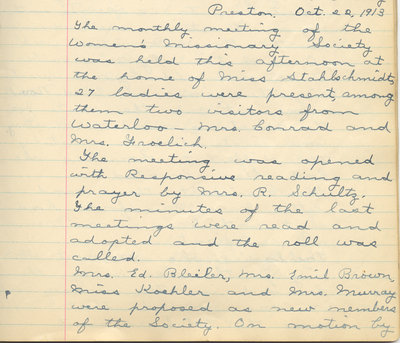 Preston. Oct. 22, 1913
The monthly meeting of the
Women's Missionary Society
was held this afternoon at
the home of Miss Stahlschmidt,
27 ladies were present, among
them two visitors from
Waterloo - Mrs. Conrad and
Mrs. Froelich.
The meeting was opened
with Responsive reading and
prayer by Mrs. R. Schultz.
The minutes of the last
meetings were read and
adopted and the roll was
called.
Mrs. Ed. Bleiler, Mrs. Emil Brown
Miss Koehler and Mrs. Murray
were proposed as new members
of the Society. On motion by